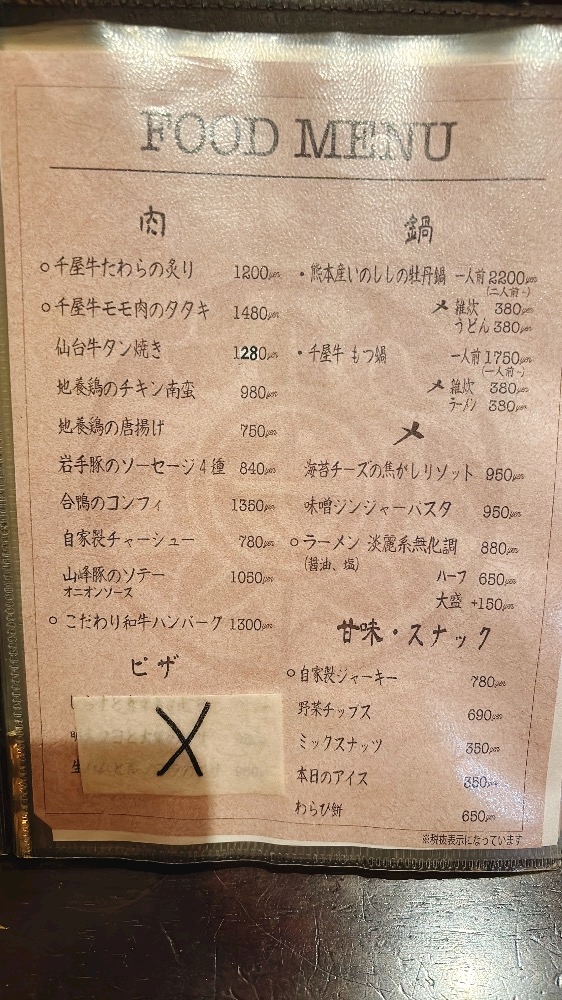 FOOD MENU
肉
○千屋牛たわらの炙り 1200yen
○千屋牛モモ肉のタタキ 1480yen
仙台牛タン焼き 1280yen
地養鶏のチキン南蛮 980yen
地養鶏の唐揚げ 750yen
岩手豚のソーセージ4種 840yen
合鴨のコンフィ 1350yen
自家製チャーシュー 780yen
山峰豚のソテー 1050yen
オニオンソース
○こだわり和牛ハンバーグ 1300yen
ピザ
X
鍋
・熊本産いのししの牡丹鍋 一人前2200yen
(二人前~)
〆 雑炊 380yen
うどん 380yen
・千屋牛 もつ鍋 一人前1750yen
(一人前~)
〆 雑炊 380yen
ラーメン 380yen
〆
海苔チーズの焦がしリゾット 950yen
味噌ジンジャーパスタ 950yen
○ラーメン 淡麗系無化調 880yen
(醤油、塩)
ハーフ 650yen
大盛 +150yen
甘味・スナック
○自家製ジャーキー 780yen
野菜チップス 690yen
ミックスナッツ 350yen
本日のアイス 350yen
わらび餅 650yen
※税抜表示になっています